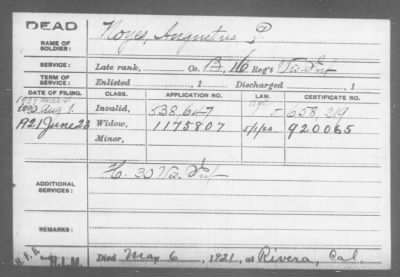 DEAD
NAME OF SOLDIER: Noyes, Augustus P.
SERVICE: Late rank, Co. B, 16 Reg't Va. Inf
TERM OF SERVICE: Enlisted , 1 Discharged , 1
DATE OF FILING. CLASS. APPLICATION NO. LAW. CERTIFICATE NO.
Aug. 1. Invalid, 538,647 658,219
1921 June 23 Widow, 1175807 5/1/20 920065
Minor,
ADDITIONAL SERVICES:
REMARKS:
Died May 6, 1921, at Rivera, Cal.